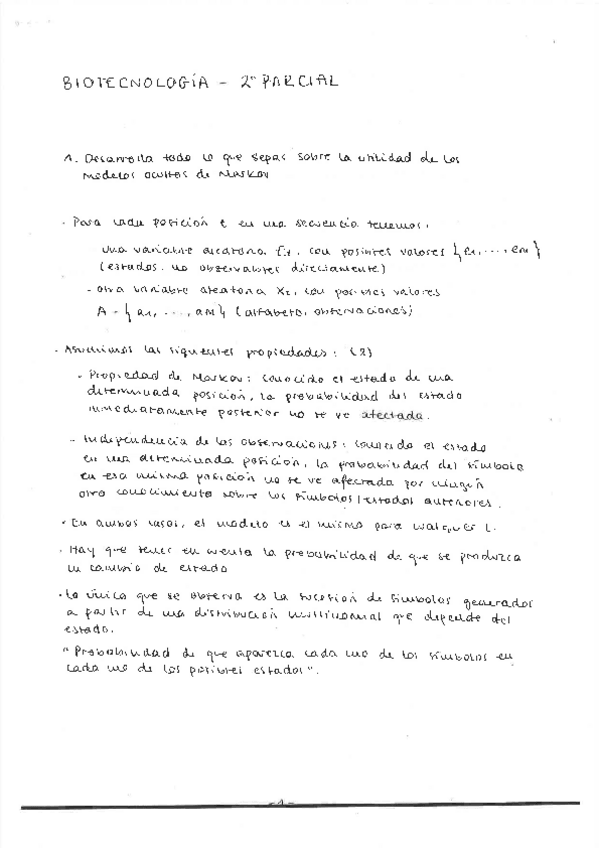 BIOTECNOLOGÍA - 2º PARCIAL
1. Desarrolla todo lo que sepas sobre la utilidad de los
modelos ocultos de Markov
- Para cada posición t en una secuencia tenemos:
una variable aleatoria Et, con posibles valores {e1, ..., em}
(estados, no observables directamente)
- otra variable aleatoria Xt, con posibles valores
A = {a1, ..., am} (alfabeto, observaciones)
- Asumimos las siguientes propiedades: (2)
- Propiedad de Markov: conocido el estado de una
determinada posición, la probabilidad del estado
inmediatamente posterior no se ve afectada.
- Independencia de las observaciones: conocido el estado
en una determinada posición, la probabilidad del símbolo
en esa misma posición no se ve afectada por ningún
otro conocimiento sobre los símbolos/estados anteriores.
- En ambos casos, el modelo es el mismo para cualquier t.
- Hay que tener en cuenta la probabilidad de que se produzca
un cambio de estado
- Lo único que se observa es la sucesión de símbolos generados
a partir de una distribución multinomial que depende del
estado.
"Probabilidad de que aparezca cada uno de los símbolos en
cada uno de los posibles estados".
-1-